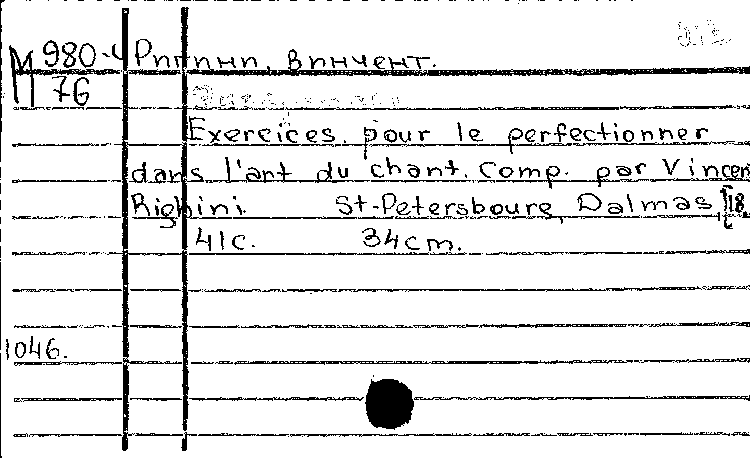 M 980-4 Ригини, Винчент.
76
Exercices pour le perfectionner
dans l'art du chant. Comp. par Vincen
Righini. St-Petersboure, Dalmas, [18.
41с. 34cm.
1046.